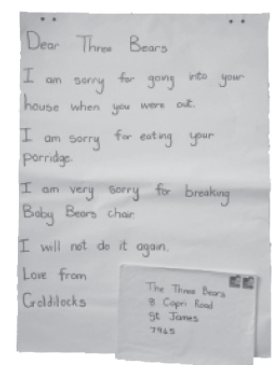 Dear Three Bears
I am sorry for going into your
house when you were out.
I am sorry for eating your
porridge.
I am very sorry for breaking
Baby Bears chair.
I will not do it again.
Love from
Goldilocks
The Three Bears
8 Capri Road
St James
7945